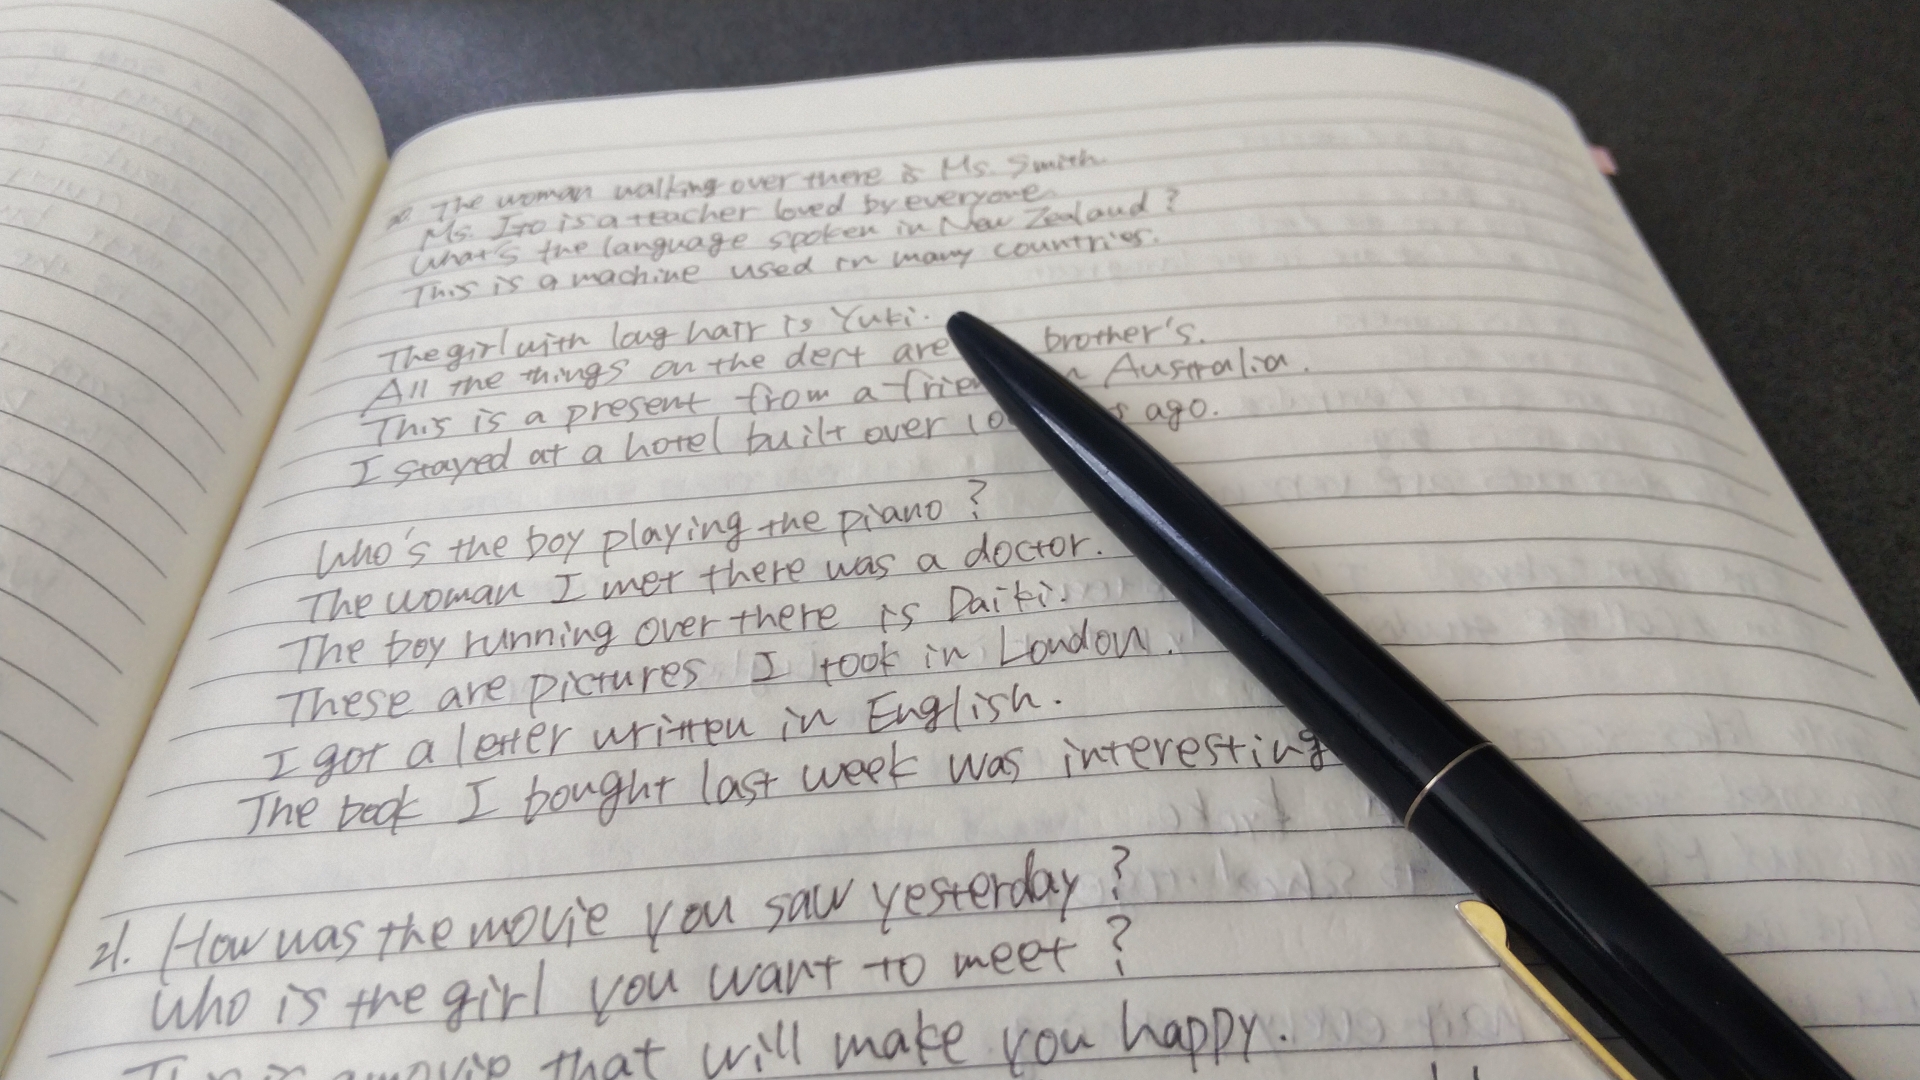 20. The woman walking over there is Ms. Smith.
Ms. Ito is a teacher loved by everyone
What's the language spoken in New Zealand?
This is a machine used in many countries.
The girl with long hair is Yuki.
All the things on the are brother's.
This is a present from a Australia.
I stayed at a hotel built over ago.
Who's the boy playing the piano?
The woman I met there was a doctor.
The boy running over there is Daiki.
These are pictures I took in London.
I got a letter written in English.
The book I bought last week was interesting
21. How was the movie you saw yesterday?
Who is the girl you want to meet?
movie that will make you happy.